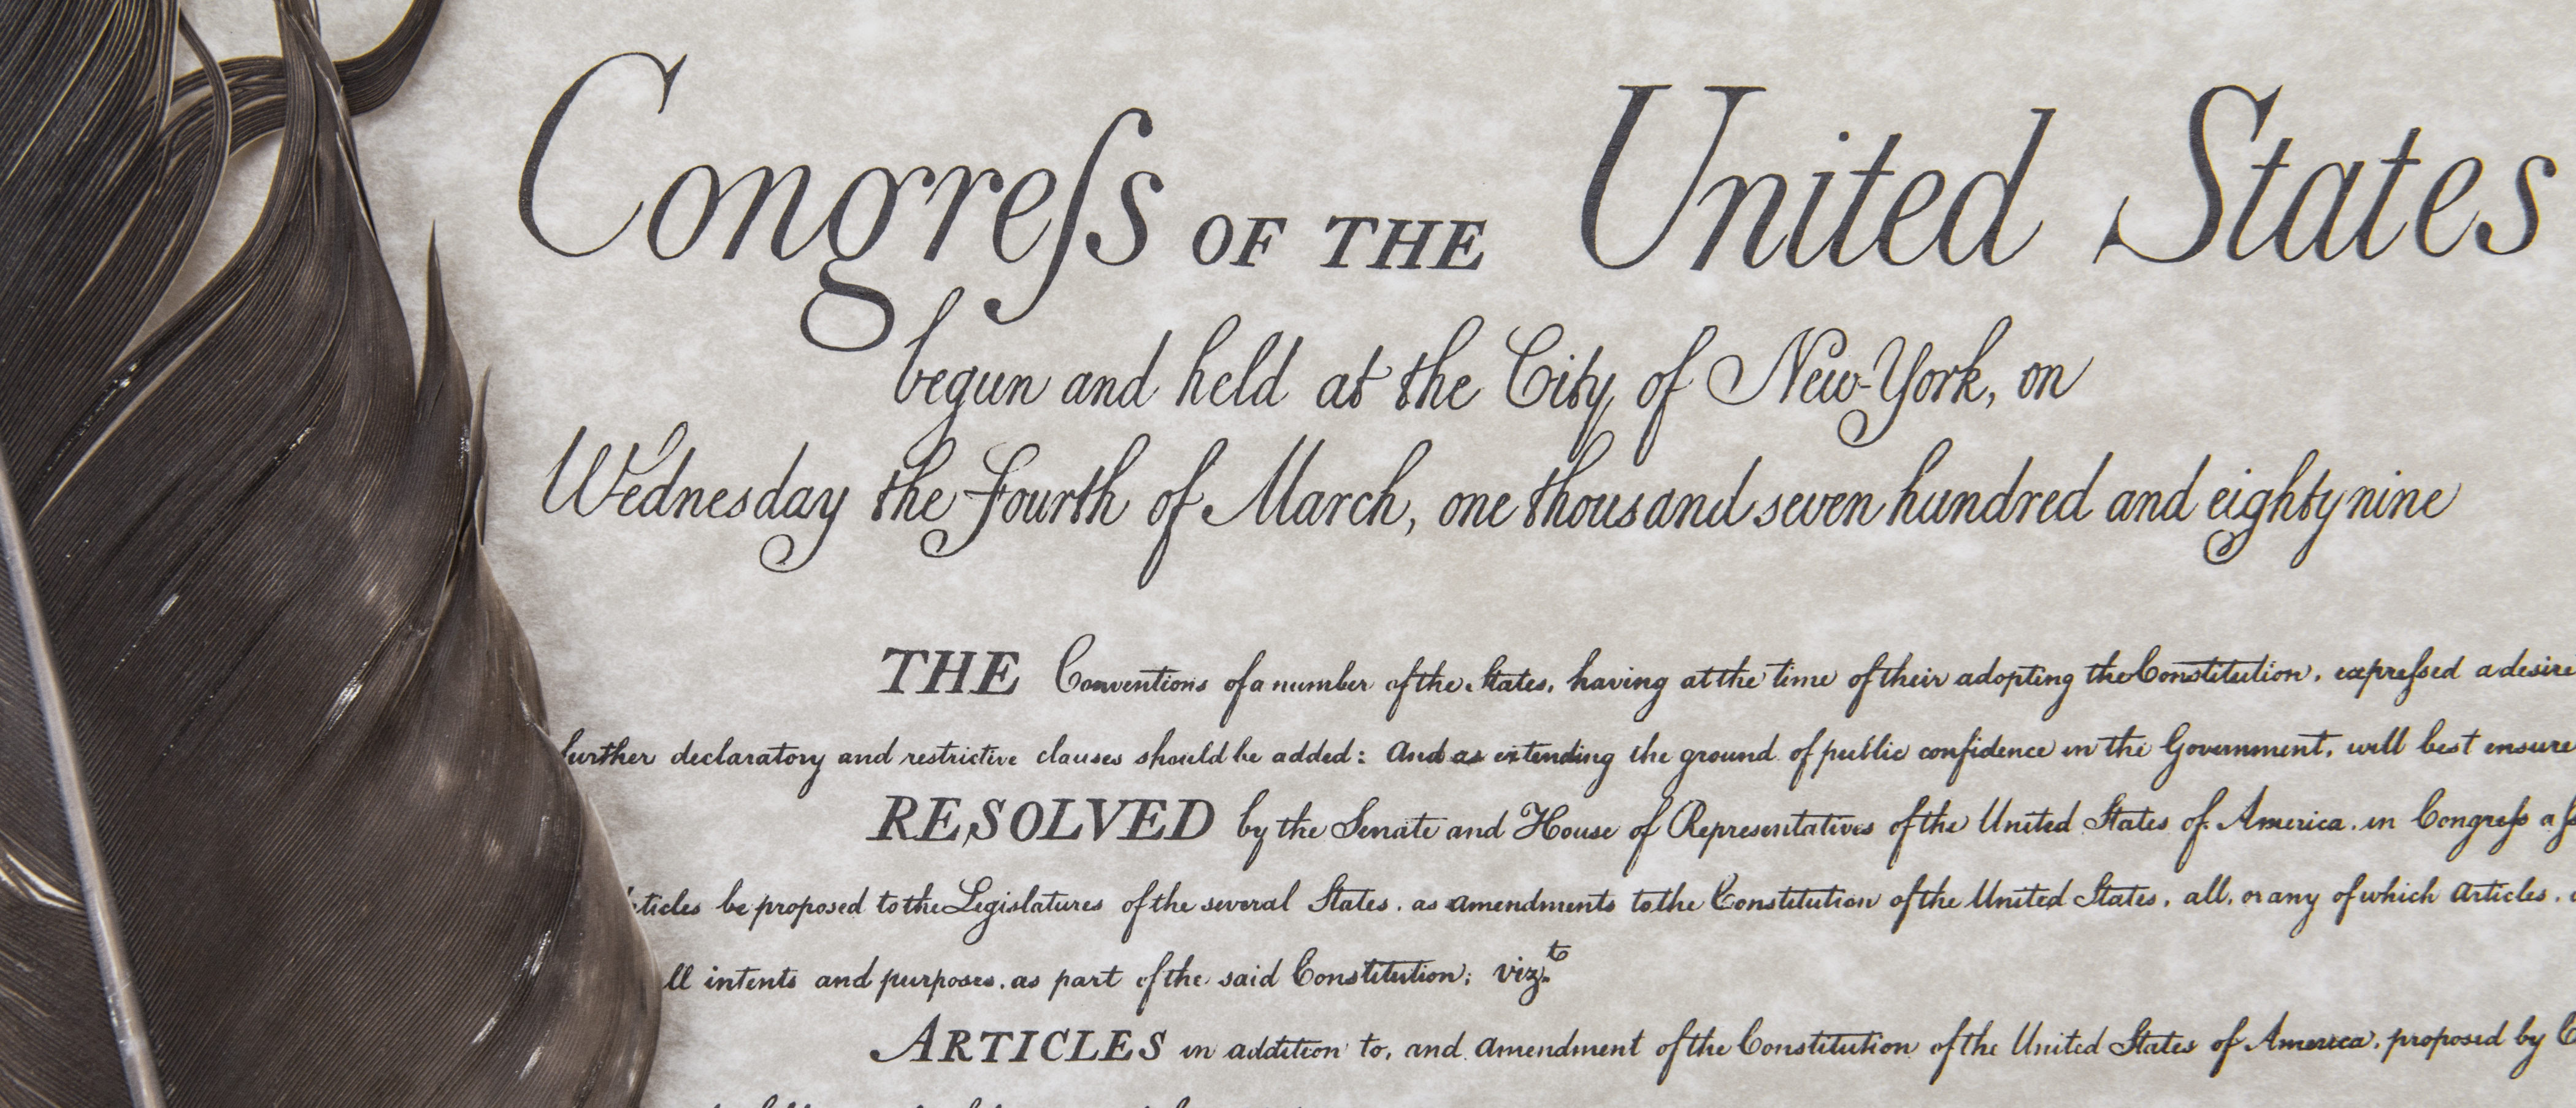 Congreſs OF THE United States
begun and held at the City of New-York, on
Wednesday the Fourth of March, one thousand seven hundred and eighty nine
THE Conventions of a number of the States, having at the time of their adopting the Constitution, expreſsed a desire
further declaratory and restrictive clauses should be added: And as extending the ground of public confidence in the Government, will best ensure
RESOLVED by the Senate and House of Representatives of the United States of America, in Congreſs aſs
ticles be proposed to the Legislatures of the several States, as amendments to the Constitution of the United States, all, or any of which Articles,
ll intents and purposes, as part of the said Constitution; viz.t
ARTICLES in addition to, and amendment of the Constitution of the United States of America, proposed by C